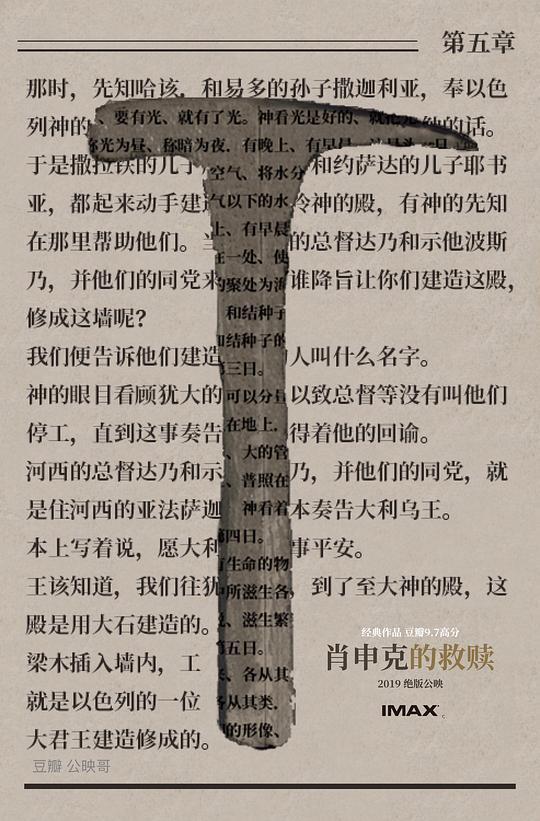 第五章
那时，先知哈该，和易多的孙子撒迦利亚，奉以色
列神的
的话。
于是撒拉铁的儿子
和约萨达的儿子耶书
亚，都起来动手建
神的殿，有神的先知
在那里帮助他们。
的总督达乃和示他波斯
乃，并他们的同党来
谁降旨让你们建造这殿，
修成这墙呢？
我们便告诉他们建造
人叫什么名字。
神的眼目看顾犹大的
以致总督等没有叫他们
停工，直到这事奏告
得着他的回谕。
河西的总督达乃和示
乃，并他们的同党，就
是住河西的亚法萨迦
本奏告大利乌王。
本上写着说，愿大利
事平安。
王该知道，我们往犹
到了至大神的殿，这
殿是用大石建造的。
梁木插入墙内，工
就是以色列的一位
大君王建造修成的。
、要有光、就有了光。神看光是好的、就把光
光为昼、称暗为夜．有晚上、有早晨
空气、将水分
气以下的水
上、有早晨
在一处、使
的聚处为海
和结种子
和结种子的
三日。
可以分
在地上．
、大的管
、普照在
神看着
第四日。
有生命的物
中所滋生各
、滋生繁
第五日。
、各从其
各从其类．
的形像、
经典作品 豆瓣9.7高分
肖申克的救赎
2019 绝版公映
IMAX
豆瓣 公映哥